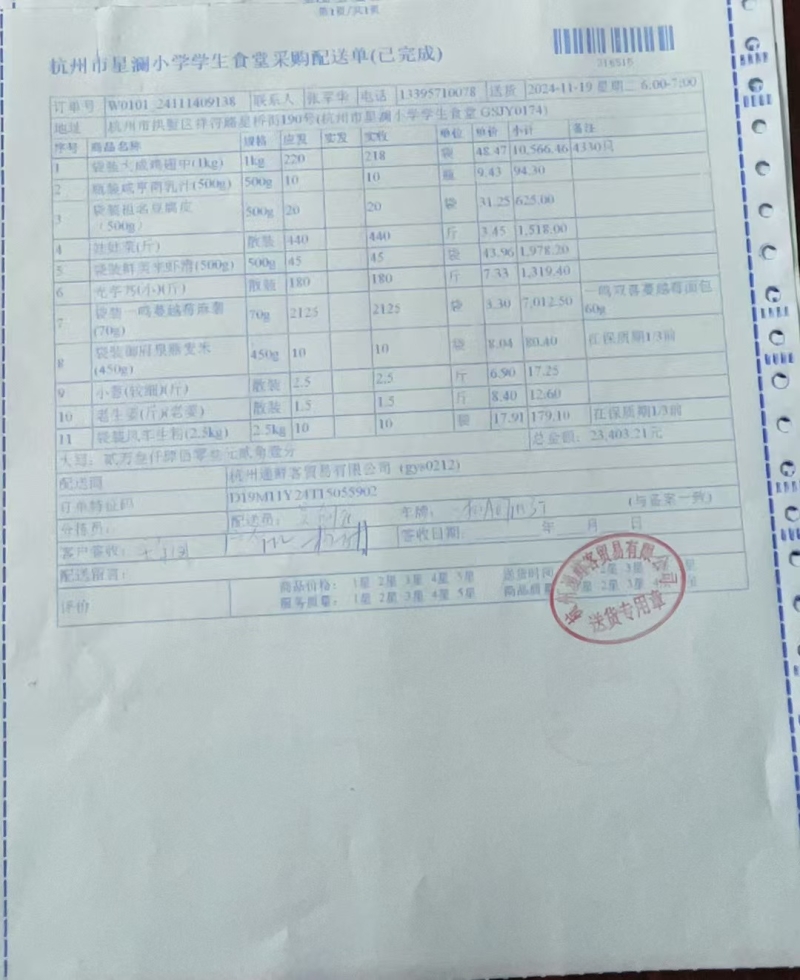 第1页/共1页
杭州市星澜小学学生食堂采购配送单(已完成)
218515
订单号 W0101_24111409138 联系人 张军华 电话 13395710078 送货 2024-11-19 星期二 6:00-7:00
地址 杭州市拱墅区祥符路星桥街190号(杭州市星澜小学学生食堂 GSJY0174)
序号 商品名称 规格 应发 实发 实收 单位 单价 小计 备注
1 袋装大成鸡翅中(1kg) 1kg 220 218 袋 48.47 10,566.46 4330只
2 瓶装咸亨南乳汁(500g) 500g 10 10 瓶 9.43 94.30
3 袋装祖名豆腐皮(500g) 500g 20 20 袋 31.25 625.00
4 娃娃菜(斤) 散装 440 440 斤 3.45 1,518.00
5 袋装鲜美来虾滑(500g) 500g 45 45 袋 43.96 1,978.20
6 (小)(斤) 散装 180 180 斤 7.33 1,319.40
7 袋装一鸣蔓越莓麻薯(70g) 70g 2125 2125 袋 3.30 7,012.50 一鸣双喜蔓越莓面包60g
8 袋装御府泉燕麦米(450g) 450g 10 10 袋 8.04 80.40 在保质期1/3前
9 小葱(较细)(斤) 散装 2.5 2.5 斤 6.90 17.25
10 老生姜(斤)(老姜) 散装 1.5 1.5 斤 8.40 12.60
11 袋装风车生粉(2.5kg) 2.5kg 10 10 袋 17.91 179.10 在保质期1/3前
总金额: 23,403.21元
大写: 贰万叁仟肆佰零叁元贰角壹分
配送商 杭州通鲜客贸易有限公司 (gys0212)
订单特征码 D19M11Y24T15055902
分拣员: 配送员: 车牌: (与备案一致)
客户签收: 签收日期: 年 月 日
配送留言:
评价 商品价格: 1星 2星 3星 4星 5星 送货时间
服务质量: 1星 2星 3星 4星 5星 商品质量
杭州通鲜客贸易有限公司
送货专用章